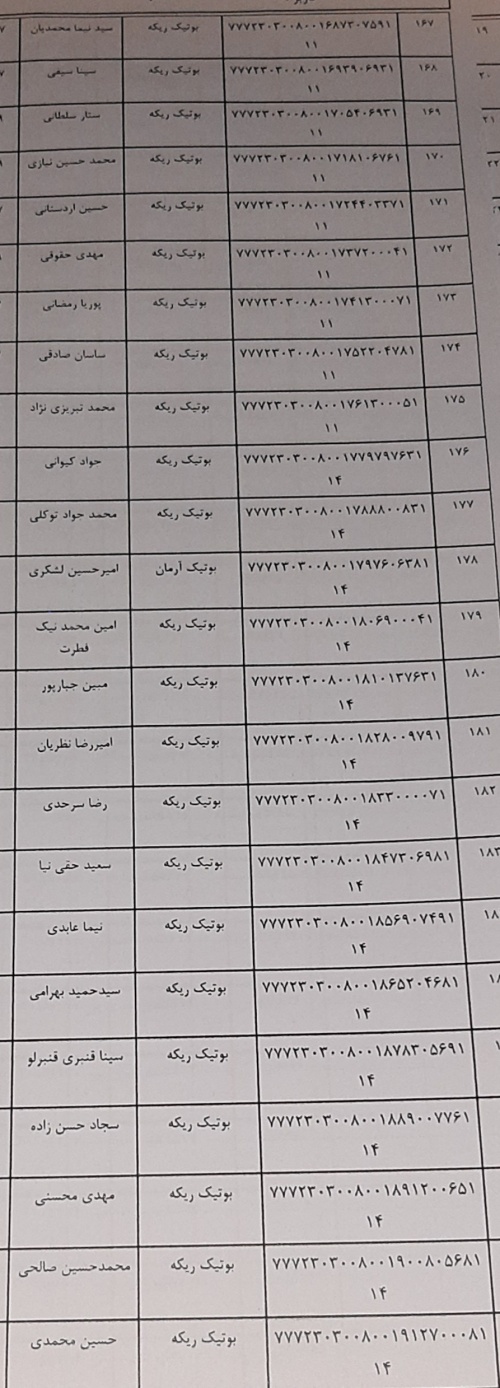 ۱۶۷ ۷۷۷۲۳۰۳۰۰۸۰۰۱۶۸۷۳۰۷۵۹۱ بوتیک ریکه سید نیما محمدیان
۱۱
۱۶۸ ۷۷۷۲۳۰۳۰۰۸۰۰۱۶۹۳۹۰۶۹۳۱ بوتیک ریکه سینا سیفی
۱۱
۱۶۹ ۷۷۷۲۳۰۳۰۰۸۰۰۱۷۰۵۴۰۶۹۳۱ بوتیک ریکه ستار سلطانی
۱۱
۱۷۰ ۷۷۷۲۳۰۳۰۰۸۰۰۱۷۱۸۱۰۶۷۶۱ بوتیک ریکه محمد حسین نیازی
۱۱
۱۷۱ ۷۷۷۲۳۰۳۰۰۸۰۰۱۷۲۴۴۰۳۳۷۱ بوتیک ریکه حسین اردستانی
۱۱
۱۷۲ ۷۷۷۲۳۰۳۰۰۸۰۰۱۷۳۷۲۰۰۰۴۱ بوتیک ریکه مهدی حقوقی
۱۱
۱۷۳ ۷۷۷۲۳۰۳۰۰۸۰۰۱۷۴۱۳۰۰۰۷۱ بوتیک ریکه پوریا رمضانی
۱۱
۱۷۴ ۷۷۷۲۳۰۳۰۰۸۰۰۱۷۵۲۲۰۴۷۸۱ بوتیک ریکه ساسان صادقی
۱۱
۱۷۵ ۷۷۷۲۳۰۳۰۰۸۰۰۱۷۶۱۳۰۰۰۵۱ بوتیک ریکه محمد تبریزی نژاد
۱۱
۱۷۶ ۷۷۷۲۳۰۳۰۰۸۰۰۱۷۷۹۷۹۷۶۳۱ بوتیک ریکه جواد کیوانی
۱۴
۱۷۷ ۷۷۷۲۳۰۳۰۰۸۰۰۱۷۸۸۸۰۰۸۳۱ بوتیک ریکه محمد جواد توکلی
۱۴
۱۷۸ ۷۷۷۲۳۰۳۰۰۸۰۰۱۷۹۷۶۰۶۳۸۱ بوتیک آرمان امیرحسین لشکری
۱۴
۱۷۹ ۷۷۷۲۳۰۳۰۰۸۰۰۱۸۰۶۹۰۰۰۴۱ بوتیک ریکه امین محمد نیک
۱۴ فطرت
۱۸۰ ۷۷۷۲۳۰۳۰۰۸۰۰۱۸۱۰۱۳۷۶۳۱ بوتیک ریکه مبین جبارپور
۱۴
۱۸۱ ۷۷۷۲۳۰۳۰۰۸۰۰۱۸۲۸۰۰۹۷۹۱ بوتیک ریکه امیررضا نظریان
۱۴
۱۸۲ ۷۷۷۲۳۰۳۰۰۸۰۰۱۸۳۳۰۰۰۰۷۱ بوتیک ریکه رضا سرحدی
۱۴
۷۷۷۲۳۰۳۰۰۸۰۰۱۸۴۷۳۰۶۹۸۱ بوتیک ریکه سعید حقی نیا
۱۴
۷۷۷۲۳۰۳۰۰۸۰۰۱۸۵۶۹۰۷۴۹۱ بوتیک ریکه نیما عابدی
۱۴
۷۷۷۲۳۰۳۰۰۸۰۰۱۸۶۵۲۰۴۶۸۱ بوتیک ریکه سیدحمید بهرامی
۱۴
۷۷۷۲۳۰۳۰۰۸۰۰۱۸۷۸۳۰۵۶۹۱ بوتیک ریکه سینا قنبری قنبرلو
۱۴
۷۷۷۲۳۰۳۰۰۸۰۰۱۸۸۹۰۰۷۷۶۱ بوتیک ریکه سجاد حسن زاده
۱۴
۷۷۷۲۳۰۳۰۰۸۰۰۱۸۹۱۲۰۰۶۵۱ بوتیک ریکه مهدی محسنی
۱۴
۷۷۷۲۳۰۳۰۰۸۰۰۱۹۰۰۸۰۵۶۸۱ بوتیک ریکه محمدحسین صالحی
۱۴
۷۷۷۲۳۰۳۰۰۸۰۰۱۹۱۲۷۰۰۰۸۱ بوتیک ریکه حسین محمدی
۱۴